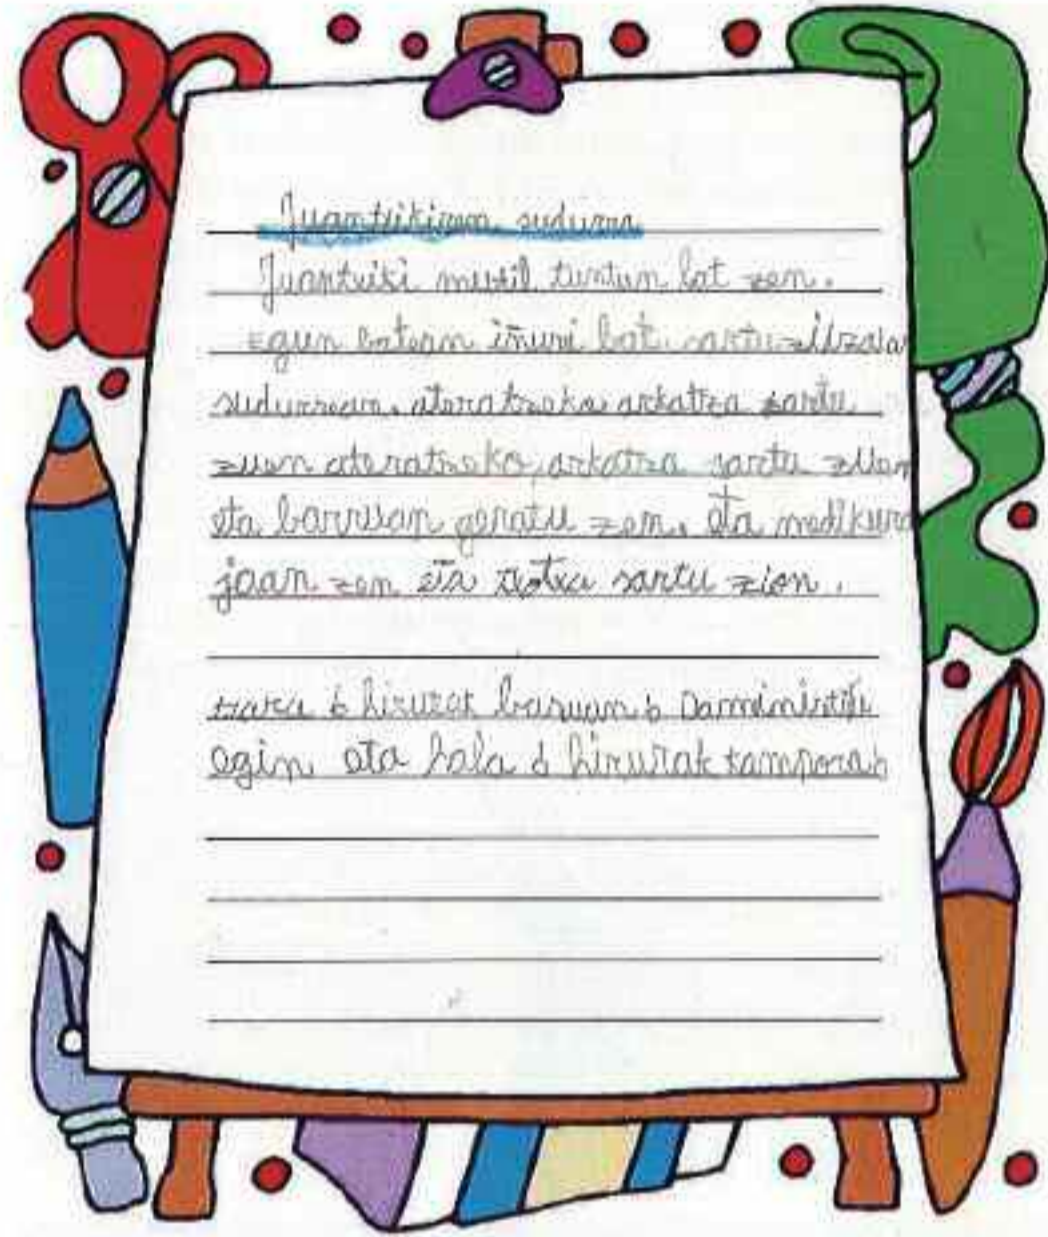 Juantxikiren sudurra
Juantxiki mutil tuntun bat zen.
Egun batean iñurri bat sartu zitzaion
sudurrean. ateratzeko arkatza sartu
zuen ateratzeko, arkatza sartu zuen
eta barruan geratu zen. eta medikura
joan zen eta txotxa sartu zion.
hara ¡ hirurak baruan! Daminixtiku
egin eta hala ¡ hirurak kampora!